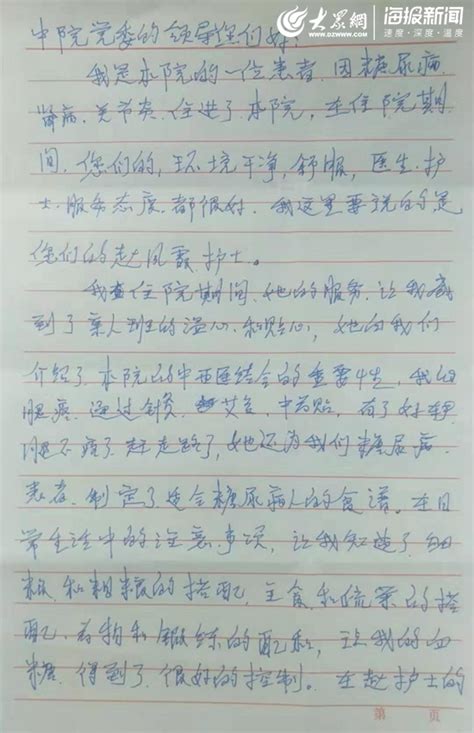 大众网 海报新闻
www.dzwww.com 速度·深度·温度
中院党委的领导您们好:
我是本院的一位患者,因糖尿病
肾病、关节炎、住进了本院,在住院期
间,您们的,环境干净,舒服,医生、护
士、服务态度、都很好、我这里要说的是
您们的赵凤霞护士。
我在住院期间、她的服务、让我感
到了亲人般的温心和贴心,她向我们
介绍了本院的中西医结合的重要性,我的
腿疼、通过针灸、艾灸、中药贴,有了好转
腿不疼了、赶走路了,她还为我们糖尿病
患者、制定了适合糖尿病人的食谱。在日
常生活中的注意事项,让我知道了、细
粮、和粗粮的搭配,主食和蔬菜的搭
配、药物和锻练的配和,现我的血
糖、得到了、很好的控制。在赵护士的
第 页